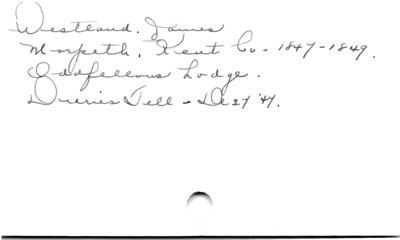 Westland. James
Morpeth, Kent Co. 1847-1849.
Oddfellows Lodge.
Dec 27 '47.